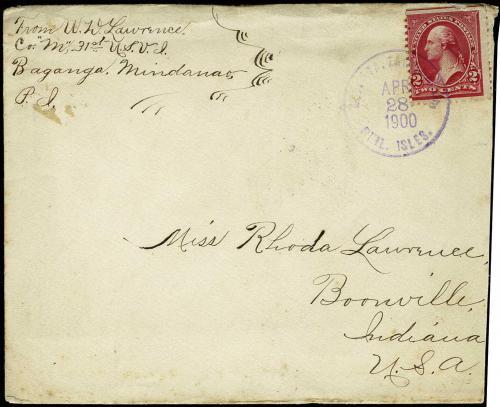 From W. W. Lawrence.
Co. "M", 31st U.S.V.I.
Baganga. Mindanao,
P. I.
UNITED STATES POSTAGE
2 2
TWO CENTS
APR
28
1900
PHIL. ISLES.
Miss Rhoda Lawrence,
Boonville,
Indiana
U.S.A.